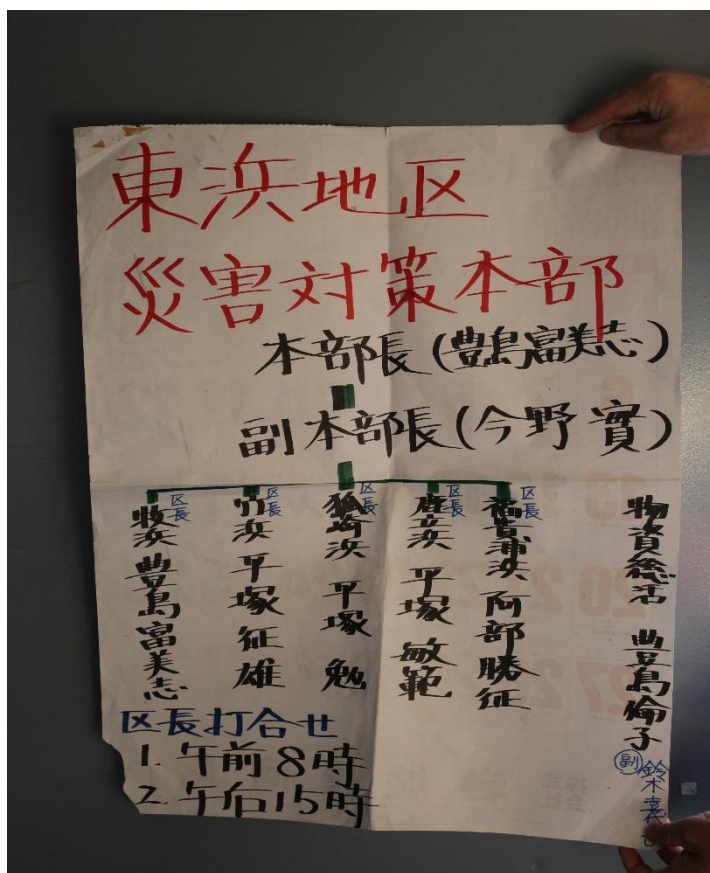 東浜地区
災害対策本部
本部長(豊島富美志)
副本部長(今野 實)
区長
牧浜 豊島富美志
区長
竹浜 平塚征雄
区長
狐崎浜 平塚 勉
区長
鹿立浜 平塚 敏範
区長
福貴浦浜 阿部勝征
物資総活 豊島倫子
副 鈴木喜
区長打合せ
1. 午前8時
2. 午后15時